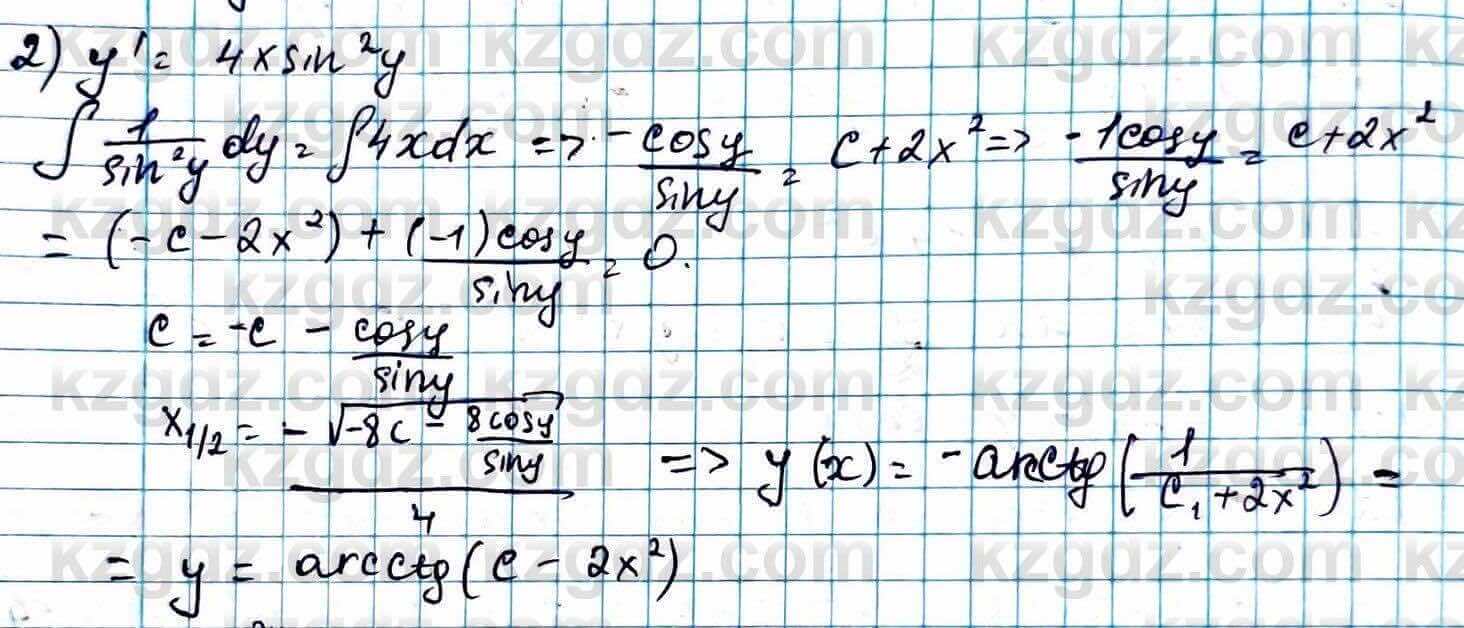 2) y' = 4x sin²y
∫ 1/sin²y dy = ∫ 4x dx => - cosy/siny = C + 2x² => -1cosy/siny = C + 2x²
= (-C - 2x²) + (-1)cosy/siny = 0.
C = -C - cosy/siny
x₁/₂ = - √(-8C - 8cosy/siny)/4 => y(x) = -arcctg(1/(C₁ + 2x²)) =
= y = arcctg(C - 2x²)
kzgdz.com